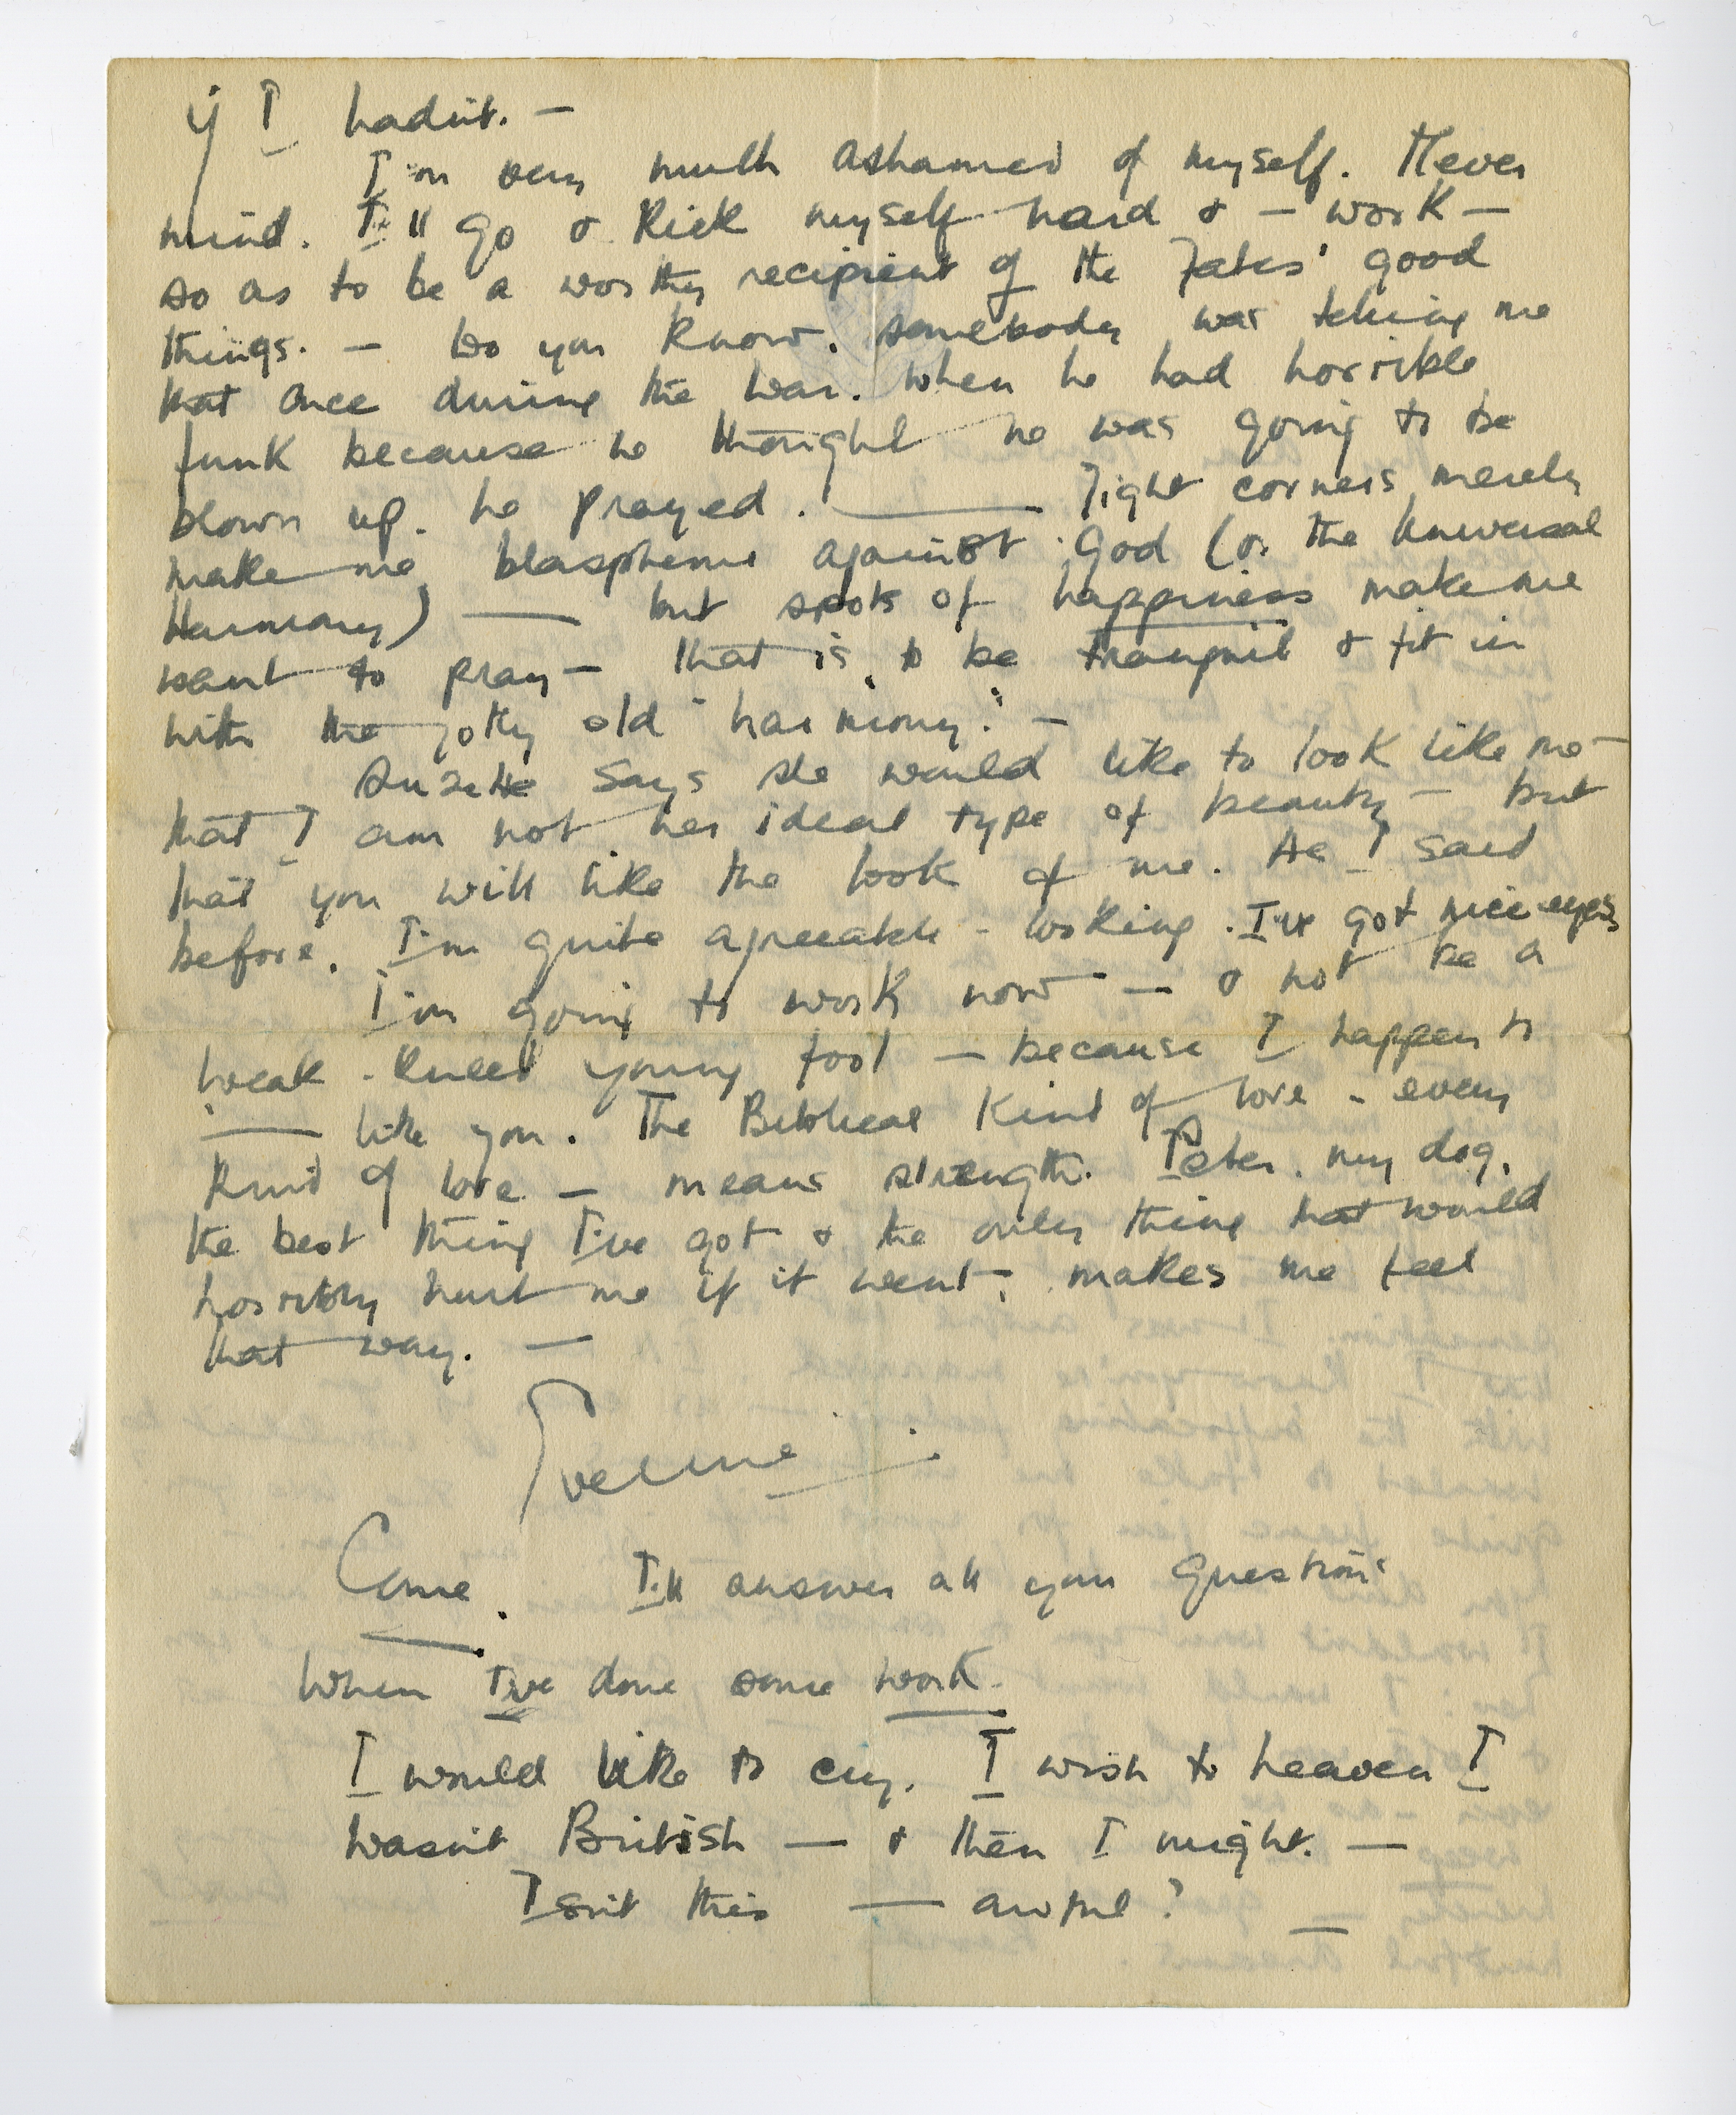 if I hadn't. —
I'm very much ashamed of myself. Never
mind. I'll go & kick myself hard & — work —
so as to be a worthy recipient of the Fates' good
things. — Do you know, somebody was telling me
that once during the war. When he had horrible
funk because he thought he was going to be
blown up. he prayed. — Tight corners merely
make me blaspheme against God (or the Universal
Harmony) — but spots of happiness make me
want to pray — that is, to be tranquil & fit in
with the jolly old "harmony." —
Suzette says she would like to look like me —
that I am not her ideal type of beauty — but
that you will like the look of me. As I said
before. I'm quite agreeable - looking. I've got nice eyes
I'm going to work now — & not be a
weak - kneed young fool — because I happen to
— like you. The Biblical kind of love - every
kind of love — means strength. Peter. my dog,
the best thing I've got & the only thing that would
horribly hurt me if it went, makes me feel
that way. —
Evelyne
Come. I'll answer all your questions
When I've done some work.
I would like to cry. I wish to heaven I
wasn't British — & then I might. —
Isn't this — awful? —